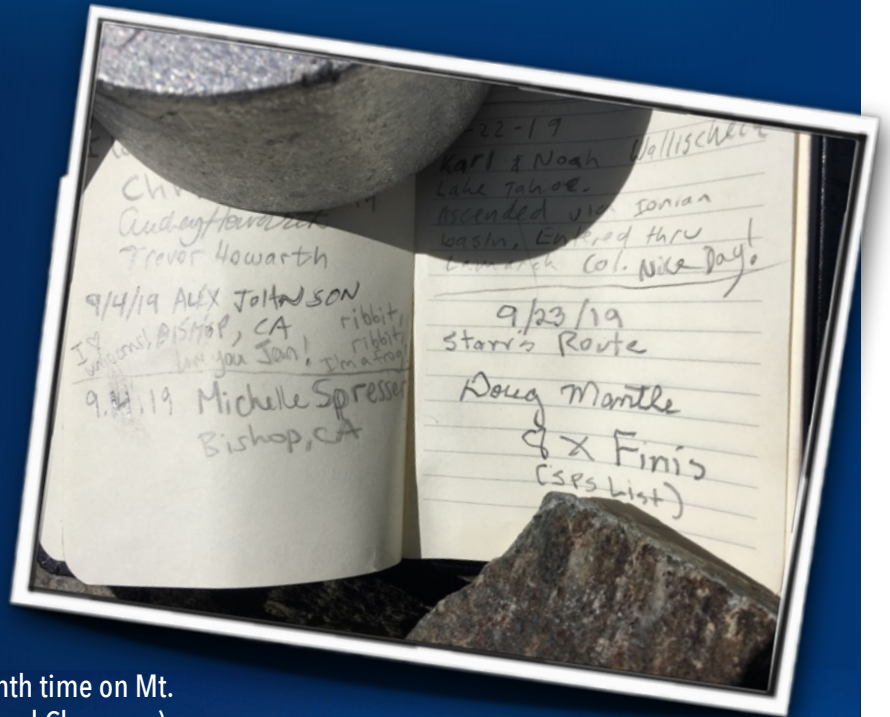 Trevor Howarth
9/4/19 ALEX JOHNSON
BISHOP, CA
I ♡
unicorns!
love you Jan!
ribbit,
ribbit,
I'm a frog!
9.4.19 Michelle Spresser
Bishop, CA
-22-19
Karl & Noah Wallischeck
Lake Tahoe.
Ascended via Ionian
basin, Entered thru
Lamarck Col. Nice Day!
9/23/19
Starr's Route
Doug Mantle
9 x Finis
(SPS List)
nth time on Mt.